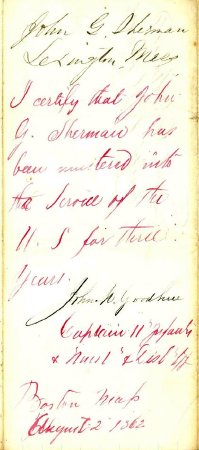 John G. Sherman
Lexington Mass
I certify that John
G. Sherman has
been mustered into
the Service of the
U. S for three
years.
John W. Goodhue
Captain 11 Infantry
& Must
Boston Mass
August 2 1862